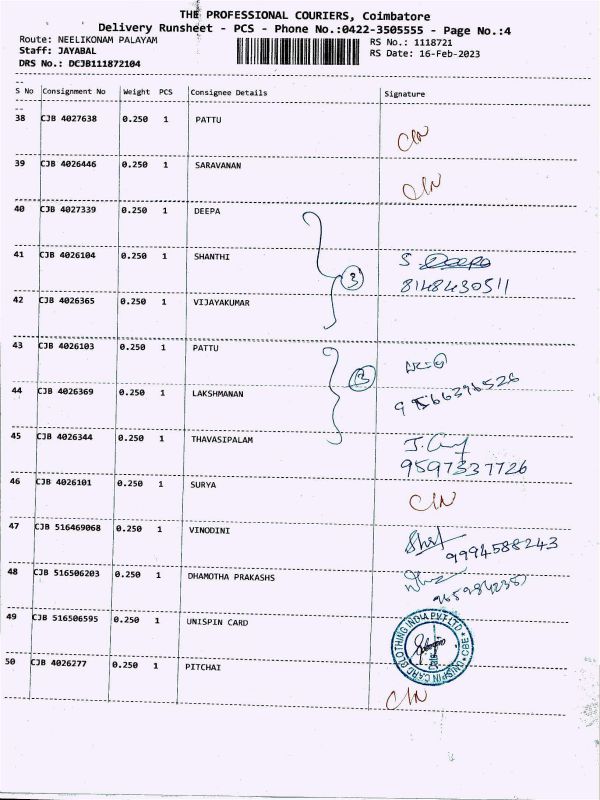 THE PROFESSIONAL COURIERS, Coimbatore
Delivery Runsheet - PCS - Phone No.:0422-3505555 - Page No.:4
Route: NEELIKONAM PALAYAM
RS No.: 1118721
Staff: JAYABAL
RS Date: 16-Feb-2023
DRS No.: DCJB111872104
S No Consignment No Weight PCS Consignee Details Signature
38 CJB 4027638 0.250 1 PATTU
C/N
39 CJB 4026446 0.250 1 SARAVANAN
C/N
40 CJB 4027339 0.250 1 DEEPA
41 CJB 4026104 0.250 1 SHANTHI S. Deepa
3 8148430511
42 CJB 4026365 0.250 1 VIJAYAKUMAR
43 CJB 4026103 0.250 1 PATTU
44 CJB 4026369 0.250 1 LAKSHMANAN
45 CJB 4026344 0.250 1 THAVASIPALAM
9597337726
46 CJB 4026101 0.250 1 SURYA
C/N
47 CJB 516469068 0.250 1 VINODINI
9994588243
48 CJB 516506203 0.250 1 DHAMOTHA PRAKASHS
49 CJB 516506595 0.250 1 UNISPIN CARD
UNISPIN CARD CLOTHING INDIA PVT LTD * CBE *
50 CJB 4026277 0.250 1 PITCHAI
C/N